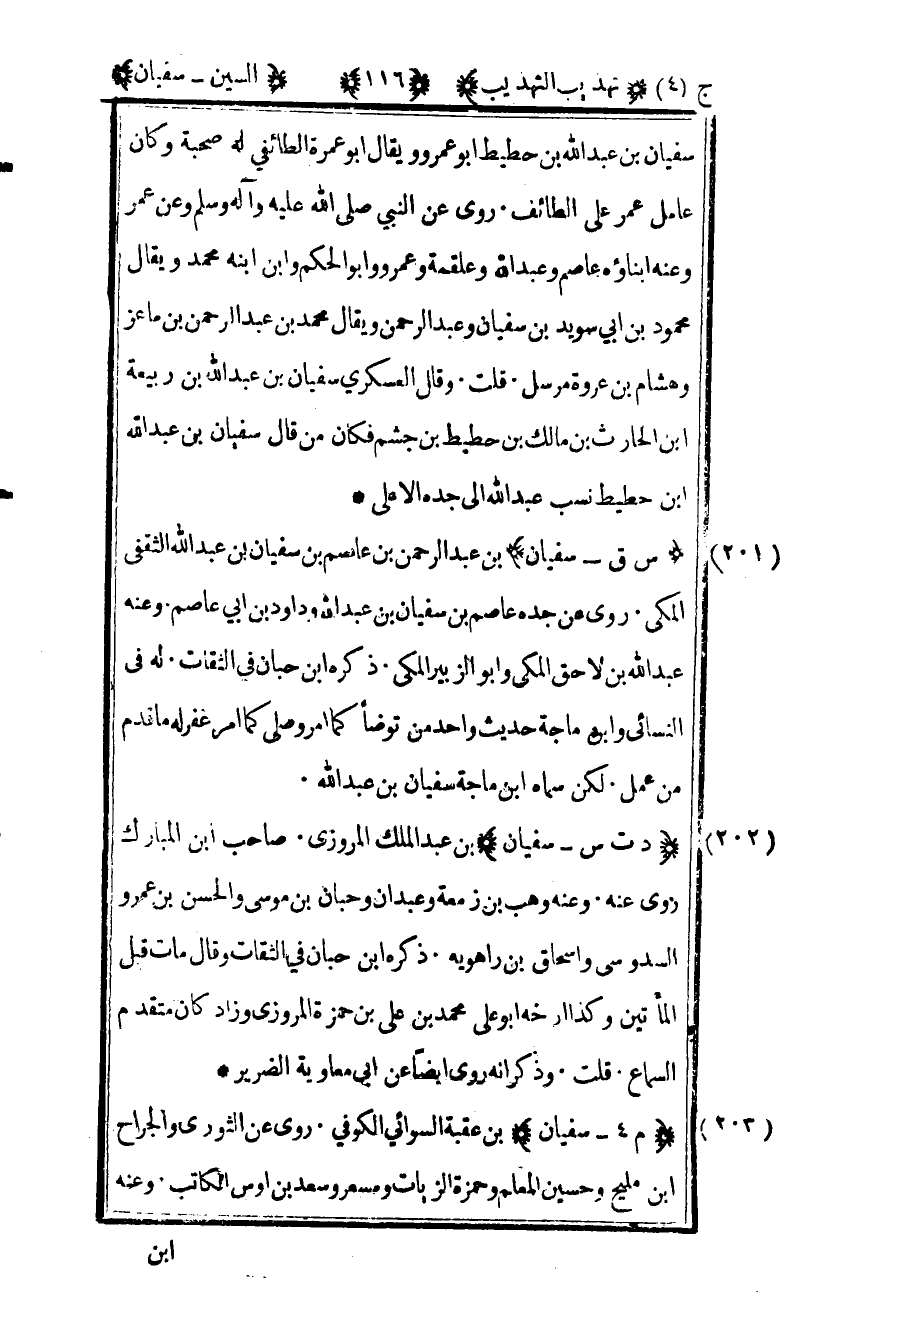 ج (٤) ﴿ تهذيب التهذيب ﴾ ﴿ ١١٦ ﴾ ﴿ السين ـ سفيان ﴾
سفيان بن عبدالله بن حطيط ابو عمرو ويقال ابو عمرة الطائفي له صحبة وكان
عامل عمر على الطائف ٠ روى عن النبي صلى الله عليه وآله وسلم وعن عمر
وعنه ابناؤه عاصم وعبدالله وعلقمة وعمرو وابوالحكم وابن ابنه محمد ويقال
محمود بن ابي سويد بن سفيان وعبدالرحمن ويقال محمد بن عبدالرحمن بن ماعز
وهشام بن عروة مرسل ٠ قلت ٠ وقال العسكري سفيان بن عبدالله بن ربيعة
ابن الحارث بن مالك بن حطيط بن جشم فكان من قال سفيان بن عبدالله
ابن حطيط نسب عبدالله الى جده الاعلى *
(٢٠١) ﴿ س ق ـ سفيان ﴾ بن عبدالرحمن بن عاصم بن سفيان بن عبدالله الثقفى
المكى ٠ روى عن جده عاصم بن سفيان بن عبدالله وداود بن ابي عاصم ٠ وعنه
عبدالله بن لاحق المكى وابوالزبير المكى ٠ ذكره ابن حبان في الثقات ٠ له فى
النسائى وابن ماجة حديث واحد من توضأ كما امر وصلى كما امر غفر له ما تقدم
من عمل ٠ لكن سماه ابن ماجة سفيان بن عبدالله ٠
(٢٠٢) ﴿ د ت س ـ سفيان ﴾ بن عبدالملك المروزى ٠ صاحب ابن المبارك
روى عنه ٠ وعنه وهب بن زمعة وعبدان وحبان بن موسى والحسن بن عمرو
السدوسى واسحاق بن راهويه ٠ ذكره ابن حبان في الثقات وقال مات قبل
المأتين وكذا ارخه ابو على محمد بن على بن حمزة المروزى وزاد كان متقدم
السماع ٠ قلت ٠ وذكر انه روى ايضاً عن ابي معاوية الضرير *
(٢٠٣) ﴿ م ٤ ـ سفيان ﴾ بن عقبة السوائي الكوفي ٠ روى عن الثورى والجراح
ابن مليح وحسين المعلم وحمزة الزيات ومسعر وسعد بن اوس الكاتب ٠ وعنه
ابن